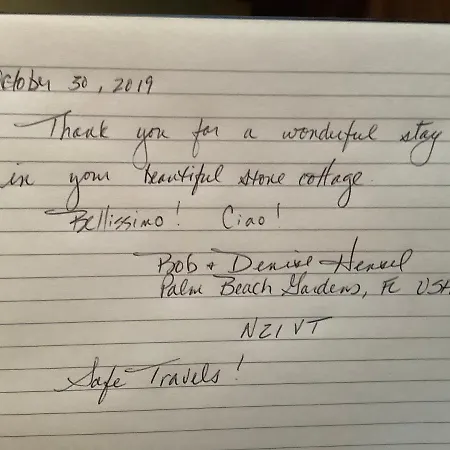 ctober 30, 2019
Thank you for a wonderful stay
in your beautiful stone cottage.
Bellissimo! Ciao!
Bob + Denise Hensel
Palm Beach Gardens, FL USA
NZ1VT
Safe Travels!